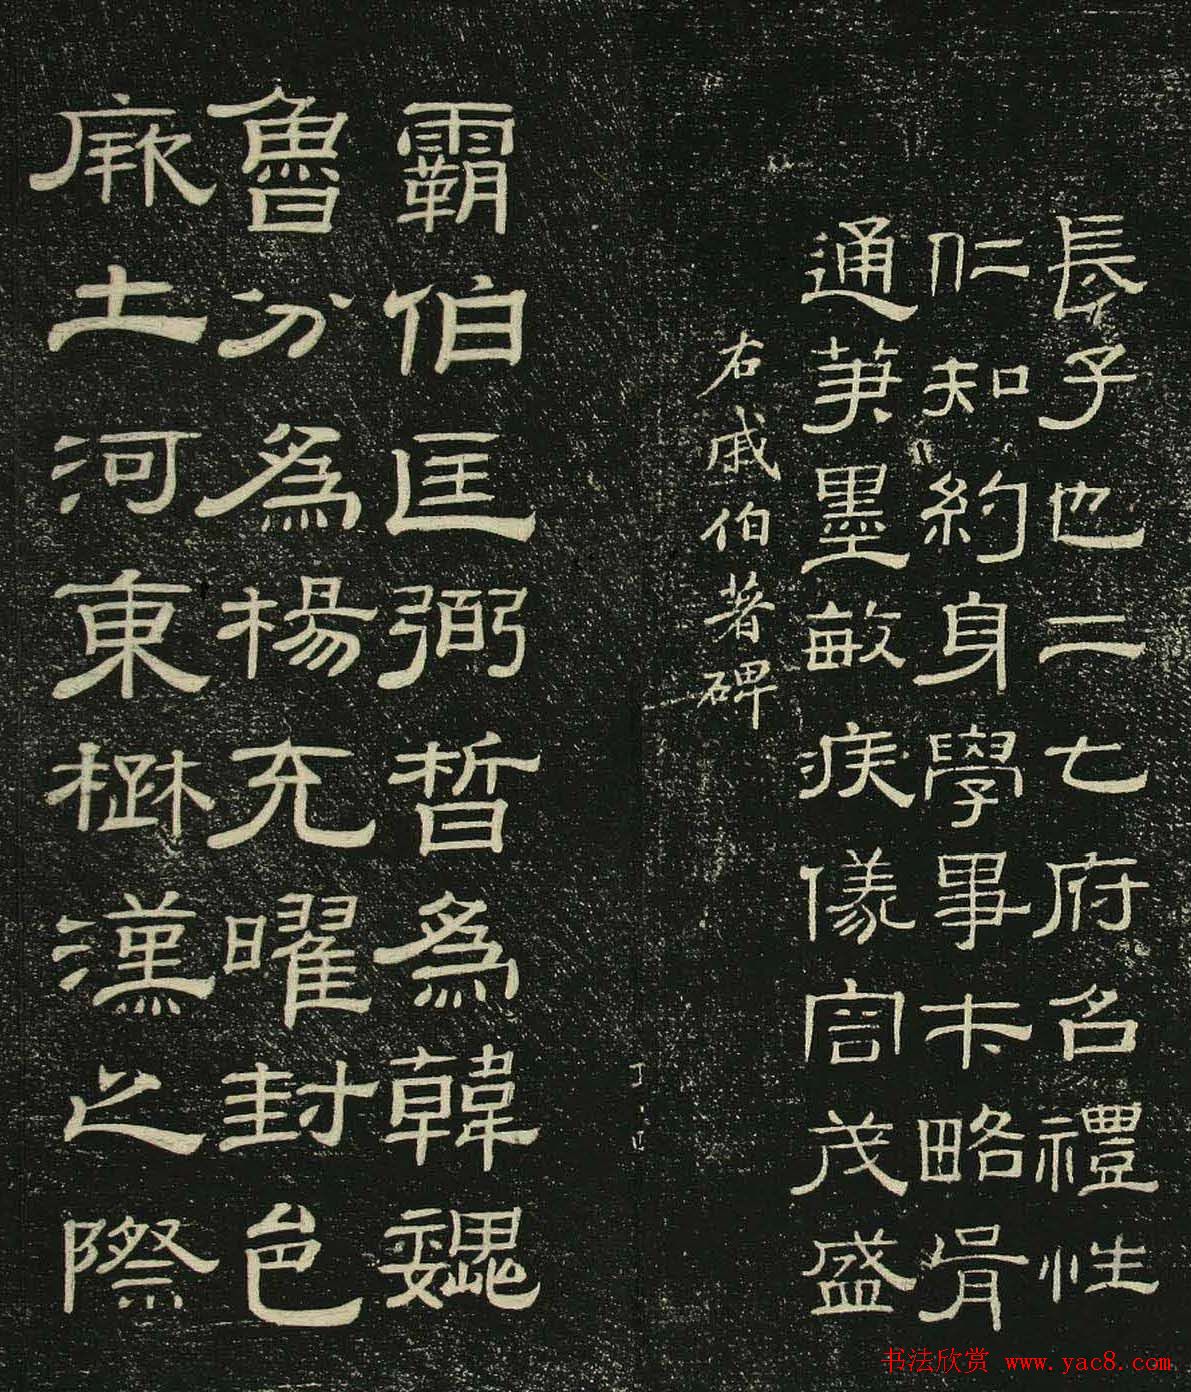 長子也二七府名禮性
仁知約身學略
通墨敏疾儀茂盛
右戚伯著碑
霸伯匡弼晢為韓魏
魯分為楊充曜封邑
厥土河東漢之際
书法欣赏 www.yac8.com